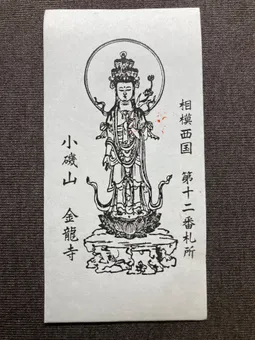 相模西国 第十二番札所
小磯山 金龍寺